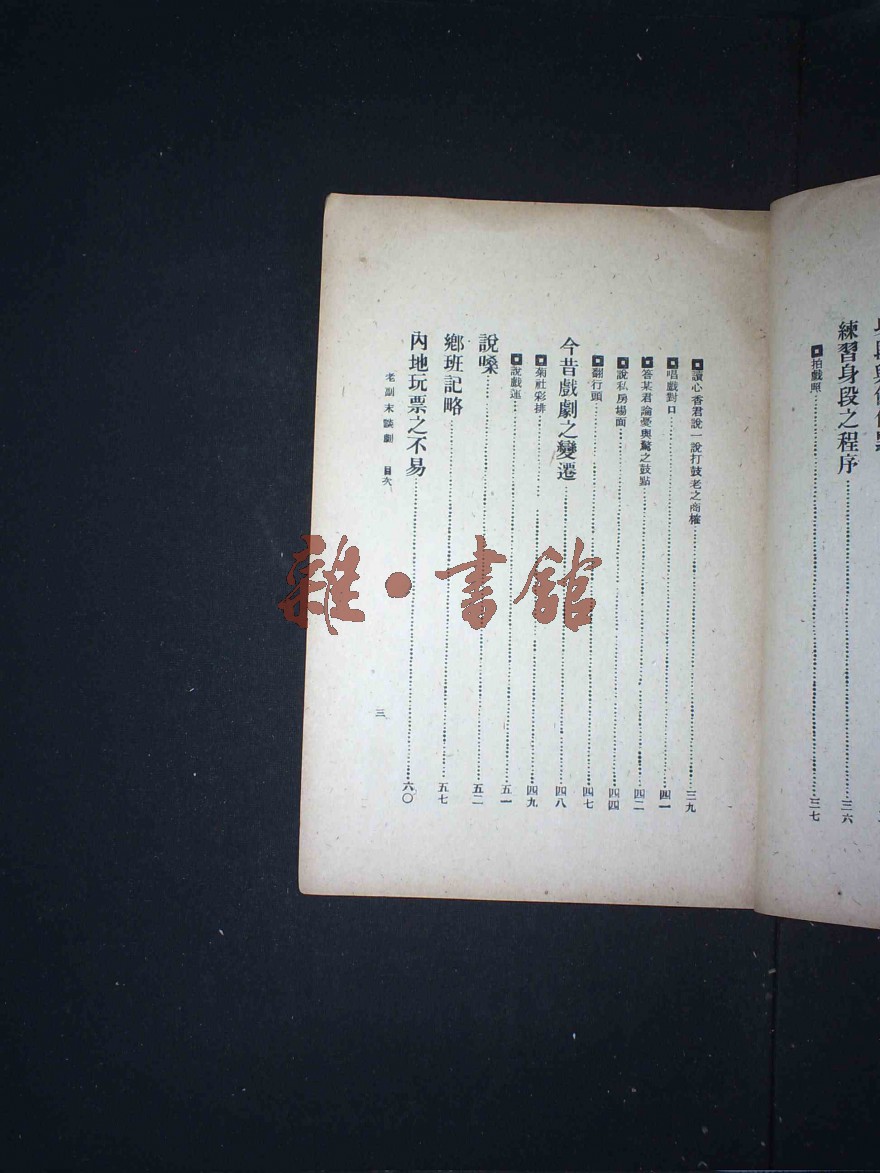 練習身段之程序 三六
拍戲照 三七
讀心香君說一說打鼓老之商榷 三九
唱戲對口 四一
答某君論憂與驚之鼓點 四二
說私房場面 四四
翻行頭 四七
今昔戲劇之變遷 四八
菊社彩排 四九
說戲蓮 五一
說嗓 五二
鄉班記略 五七
內地玩票之不易 六〇
老副末談劇 目次 三
雜·書館